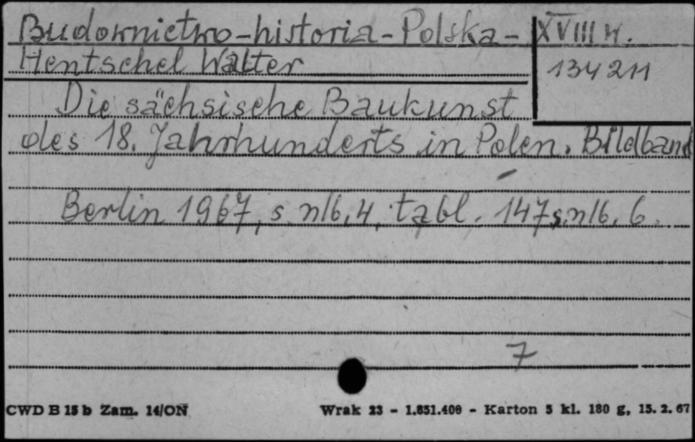 Budownictwo-historia-Polska-XVIII w.
Hentschel Walter
134211
Die sächsische Baukunst
des 18. Jahrhunderts in Polen. Bildband
Berlin 1967, s. nlb. 4, tabl. 147 s. nlb. 6.
7
CWD B 15 b Zam. 14/ON
Wrak 23 - 1.851.400 - Karton 5 kl. 180 g, 15. 2. 67